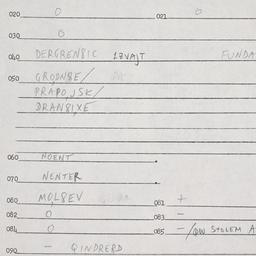 020 0 021 0
030 0
040 DERGRENSIC 12VAJT FUNDA
050 GRODNSE/
PRAPOJSK/
DRANSIXE
060 NOENT
070 NENTER
080 MOLSEV 081 +
082 0 083 -
084 0 085 - /QW STOLEM A
090 - QINDRERD